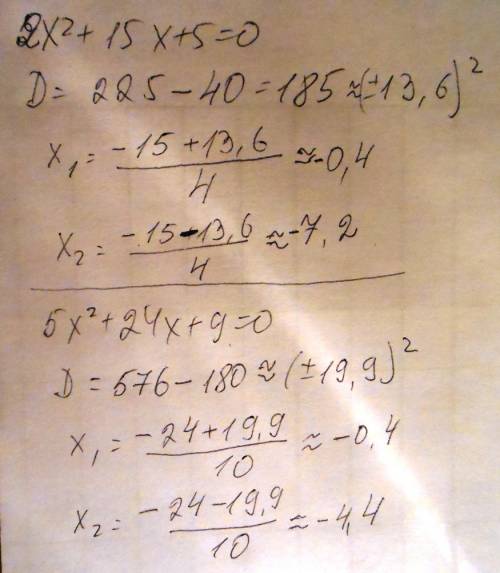 2x² + 15x + 5 = 0
D = 225 - 40 = 185 ≈ (±13,6)²
x₁ = (-15 + 13,6)/4 ≈ -0,4
x₂ = (-15 - 13,6)/4 ≈ -7,2
5x² + 24x + 9 = 0
D = 576 - 180 ≈ (±19,9)²
x₁ = (-24 + 19,9)/10 ≈ -0,4
x₂ = (-24 - 19,9)/10 ≈ -4,4